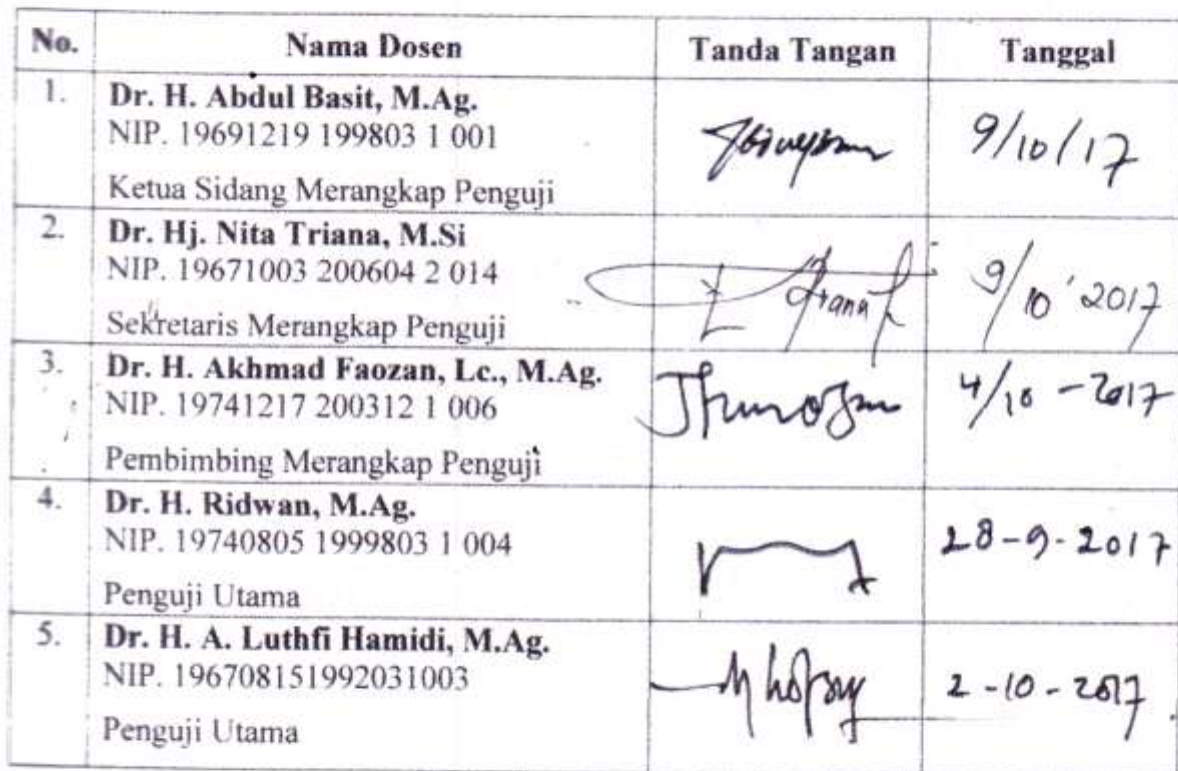 No. Nama Dosen Tanda Tangan Tanggal
1. Dr. H. Abdul Basit, M.Ag.
NIP. 19691219 199803 1 001
9/10/17
Ketua Sidang Merangkap Penguji
2. Dr. Hj. Nita Triana, M.Si
NIP. 19671003 200604 2 014
9/10 '2017
Sekretaris Merangkap Penguji
3. Dr. H. Akhmad Faozan, Lc., M.Ag.
NIP. 19741217 200312 1 006
4/10 - 2017
Pembimbing Merangkap Penguji
4. Dr. H. Ridwan, M.Ag.
NIP. 19740805 1999803 1 004
28-9-2017
Penguji Utama
5. Dr. H. A. Luthfi Hamidi, M.Ag.
NIP. 196708151992031003
2-10-2017
Penguji Utama